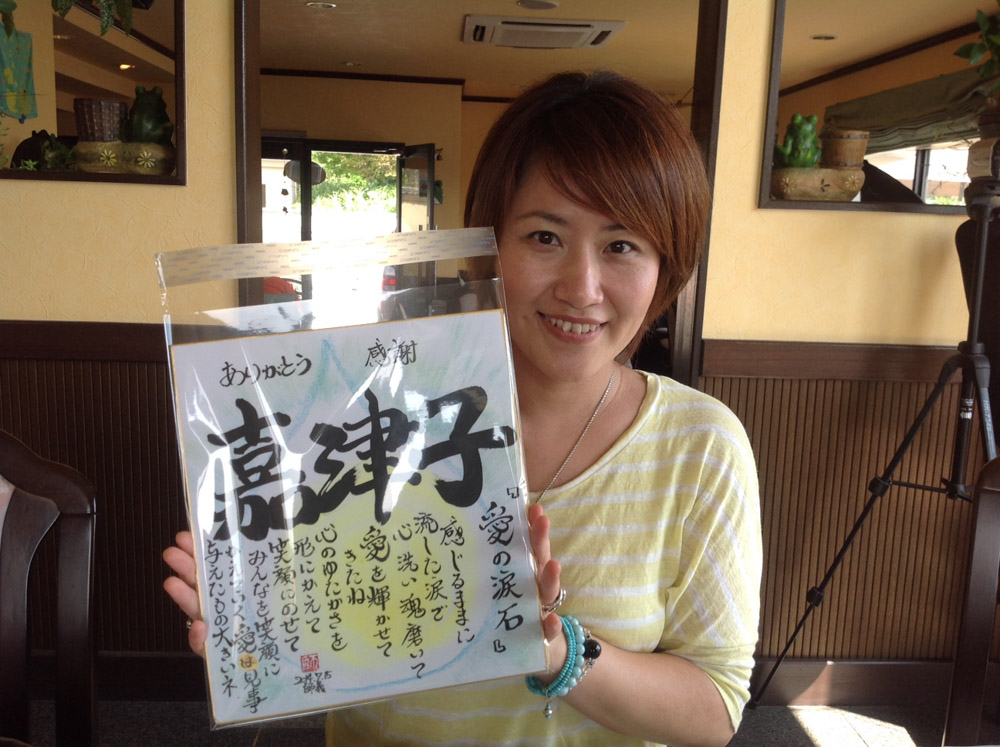 ありがとう
感謝
嘉津子
『愛の涙石』
感じるままに
流した涙で
心洗い魂磨いて
愛を輝かせて
きたね
心のゆたかさを
形にかえて
笑顔にのせて
みんなを笑顔に
愛は見事
与えたもの大きいネ